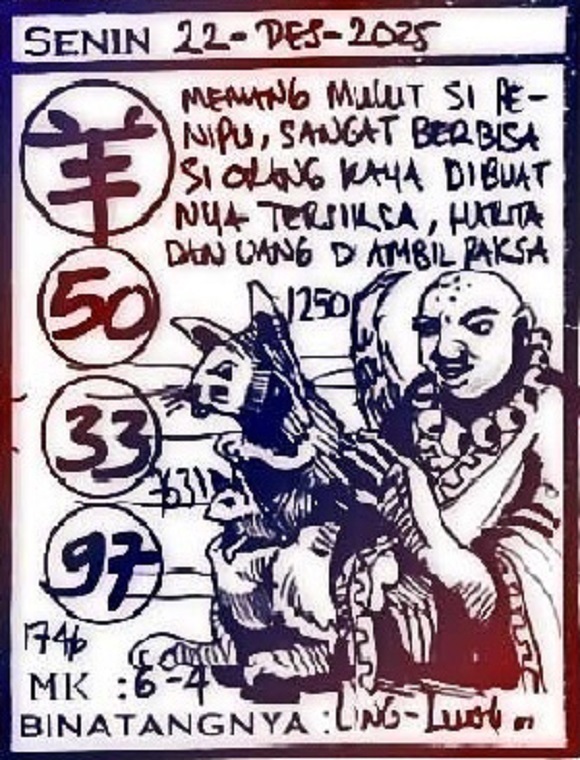 SENIN 22-DES-2025
羊
MEMANG MULUT SI PE-
NIPU, SANGAT BERBISA
SI ORANG KAYA DIBUAT
NYA TERSIKSA, HARTA
DAN UANG DI AMBIL PAKSA
50
1250
33
1631
97
1746
MK : 6-4
BINATANGNYA :